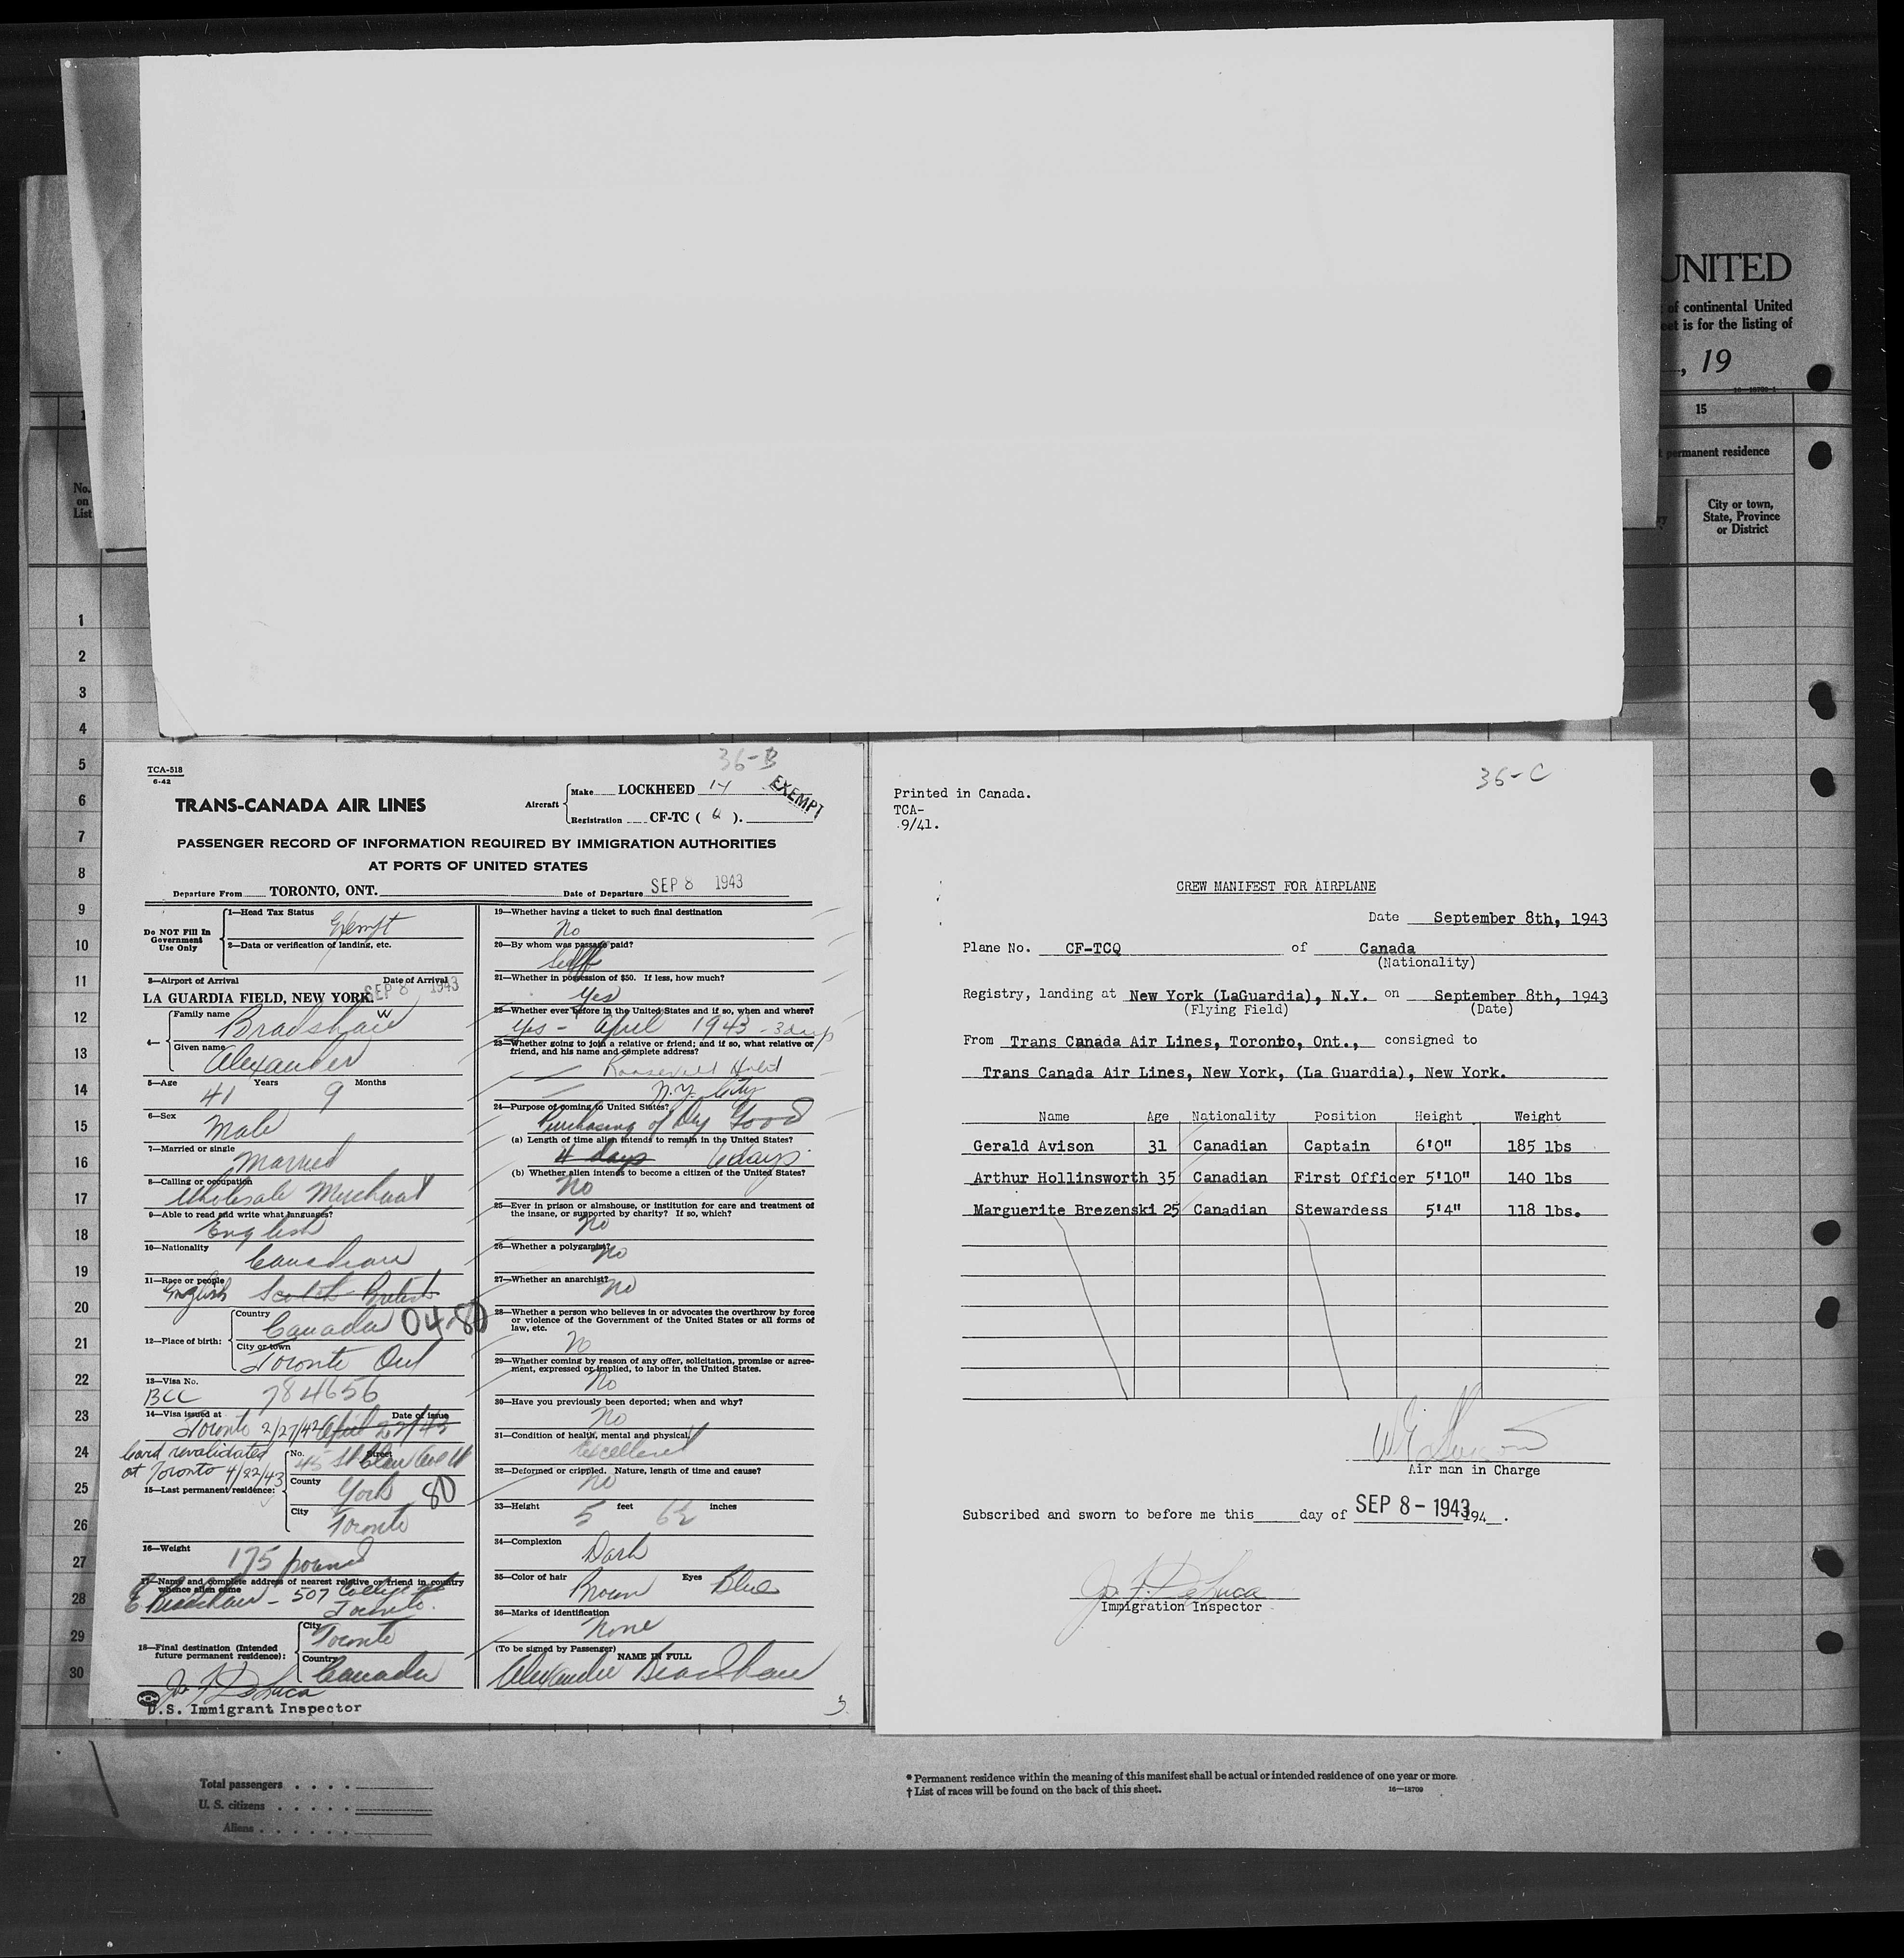 UNITED
of continental United
eet is for the listing of
, 19
15
permanent residence
City or town,
State, Province
or District
No.
on
List
1
2
3
4
5
6
7
8
9
10
11
12
13
14
15
16
17
18
19
20
21
22
23
24
25
26
27
28
29
30
36-B
TCA-518
6-42
TRANS-CANADA AIR LINES
Aircraft
Make LOCKHEED 14
Registration CF-TC ( Q ).
EXEMPT
PASSENGER RECORD OF INFORMATION REQUIRED BY IMMIGRATION AUTHORITIES
AT PORTS OF UNITED STATES
Departure From TORONTO, ONT. Date of Departure SEP 8 1943
Do NOT Fill In
Government
Use Only
1—Head Tax Status
Exempt
2—Data or verification of landing, etc.
3—Airport of Arrival Date of Arrival
LA GUARDIA FIELD, NEW YORK. SEP 8 1943
4—
Family name
Bradshaw W
Given name
Alexander
5—Age Years Months
41 9
6—Sex
Male
7—Married or single
Married
8—Calling or occupation
Wholesale Merchant
9—Able to read and write what languages?
English
10—Nationality
Canadian
11—Race or people
English Scotch British
12—Place of birth:
Country
Canada 04-80
City or town
Toronto Ont
13—Visa No.
BCC 784656
14—Visa issued at Date of issue
Toronto 2/27/42 April 22/43
Card revalidated
at Toronto 4/22/43
15—Last permanent residence:
No. Street
45 St Clair Ave W
County
York 80
City
Toronto
16—Weight
175 pounds
17—Name and complete address of nearest relative or friend in country
whence alien came
E Bradshaw - 507 College St
Toronto.
18—Final destination (Intended
future permanent residence):
City
Toronto
Country
Canada
Jos. F. DeLuca
U.S. Immigrant Inspector
19—Whether having a ticket to such final destination
No
20—By whom was passage paid?
Self
21—Whether in possession of $50. If less, how much?
Yes
22—Whether ever before in the United States and if so, when and where?
Yes - April 1943 - 3 days
23—Whether going to join a relative or friend; and if so, what relative or
friend, and his name and complete address?
Roosevelt Hotel
N.Y. City
24—Purpose of coming to United States?
Purchasing of Dry Good
(a) Length of time alien intends to remain in the United States?
4 days 6 days
(b) Whether alien intends to become a citizen of the United States?
No
25—Ever in prison or almshouse, or institution for care and treatment of
the insane, or supported by charity? If so, which?
No
26—Whether a polygamist?
No
27—Whether an anarchist?
No
28—Whether a person who believes in or advocates the overthrow by force
or violence of the Government of the United States or all forms of
law, etc.
No
29—Whether coming by reason of any offer, solicitation, promise or agree-
ment, expressed or implied, to labor in the United States.
No
30—Have you previously been deported; when and why?
No
31—Condition of health, mental and physical.
Excellent
32—Deformed or crippled. Nature, length of time and cause?
No
33—Height feet inches
5 6½
34—Complexion
Dark
35—Color of hair Eyes
Brown Blue
36—Marks of identification
None
(To be signed by Passenger) NAME IN FULL
Alexander Bradshaw
3
36-C
Printed in Canada.
TCA-
9/41.
CREW MANIFEST FOR AIRPLANE
Date September 8th, 1943
Plane No. CF-TCQ of Canada
(Nationality)
Registry, landing at New York (LaGuardia), N.Y. on September 8th, 1943
(Flying Field) (Date)
From Trans Canada Air Lines, Toronto, Ont., consigned to
Trans Canada Air Lines, New York, (La Guardia), New York.
Name Age Nationality Position Height Weight
Gerald Avison 31 Canadian Captain 6'0" 185 lbs
Arthur Hollinsworth 35 Canadian First Officer 5'10" 140 lbs
Marguerite Brezenski 25 Canadian Stewardess 5'4" 118 lbs.
Air man in Charge
Subscribed and sworn to before me this day of SEP 8 - 1943 194 .
Jos. F. DeLuca
Immigration Inspector
Total passengers . . . .
U. S. citizens . . . . .
Aliens . . . . . .
* Permanent residence within the meaning of this manifest shall be actual or intended residence of one year or more.
† List of races will be found on the back of this sheet. 16—18709